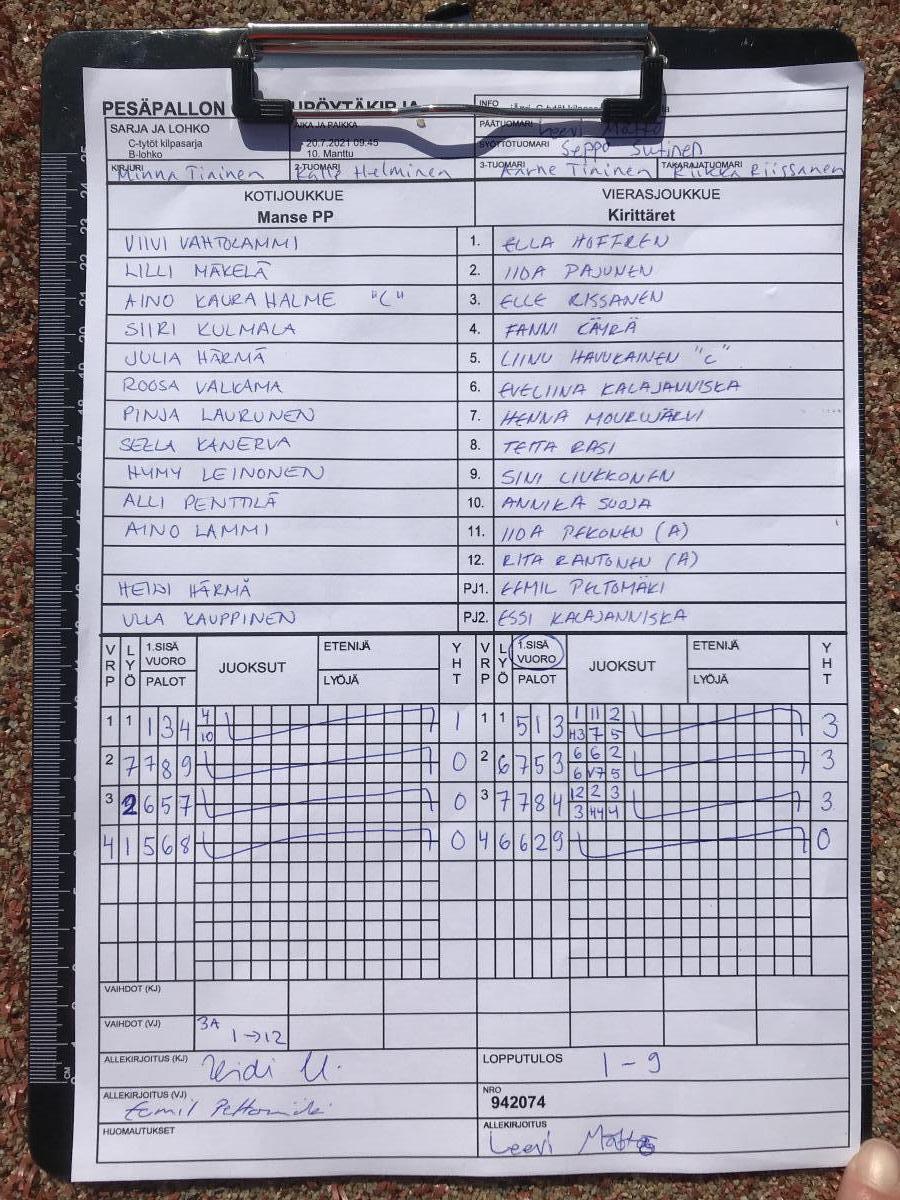 PESÄPALLON
INFO
SARJA JA LOHKO
C-tyttöt kilpasarja
B-lohko
AIKA JA PAIKKA
20.7.2021 09:45
10. Manttu
PÄÄTUOMARI Leevi Matto
SYÖTTÖTUOMARI Seppo Sutinen
KIRJURI Minna Tiainen
2-TUOMARI Kalle Helminen
3-TUOMARI Aarne Tininen
TAKARAJATUOMARI Riikka Riissanen
KOTIJOUKKUE
Manse PP
VIERASJOUKKUE
Kirittäret
VIIVI VAHTOLAMMI 1. ELLA HOFFREN
LILLI MÄKELÄ 2. IIDA PAJUNEN
AINO KAURAHALME "C" 3. ELLE RISSANEN
SIIRI KULMALA 4. FANNI CÄYRÄ
JULIA HÄRMÄ 5. LIINU HAVUKAINEN "C"
ROOSA VALKAMA 6. EVELIINA KALAJANNISKA
PINJA LAURUNEN 7. HENNA
SELLA KANERVA 8. TETTA RASI
HYMY LEINONEN 9. SINI LIUKKONEN
ALLI PENTTILÄ 10. ANNIKA SUOJA
AINO LAMMI 11. IIDA PEKONEN (A)
12. RITA RANTONEN (A)
HEIDI HÄRMÄ PJ1. EEMIL PELTOMÄKI
ULLA KAUPPINEN PJ2. ESSI KALAJANNISKA
VRP LYÖ 1.SISÄ VUORO PALOT JUOKSUT ETENIJÄ LYÖJÄ YHT VRP LYÖ 1.SISÄ VUORO PALOT JUOKSUT ETENIJÄ LYÖJÄ YHT
1 1 1 3 4 4 1 1 1 5 1 3 1 11 2 3
10 H3 7 5
2 7 7 8 9 0 2 6 7 5 3 6 6 2 3
6 V7 5
3 2 6 5 7 0 3 7 7 8 4 12 2 3 3
3 4H 4
4 1 5 6 8 0 4 6 6 2 9 0
VAIHDOT (KJ)
VAIHDOT (VJ) 3A
1→12
ALLEKIRJOITUS (KJ) LOPPUTULOS 1-9
ALLEKIRJOITUS (VJ) Eemil Peltomäki NRO
942074
HUOMAUTUKSET ALLEKIRJOITUS
Leevi Matto